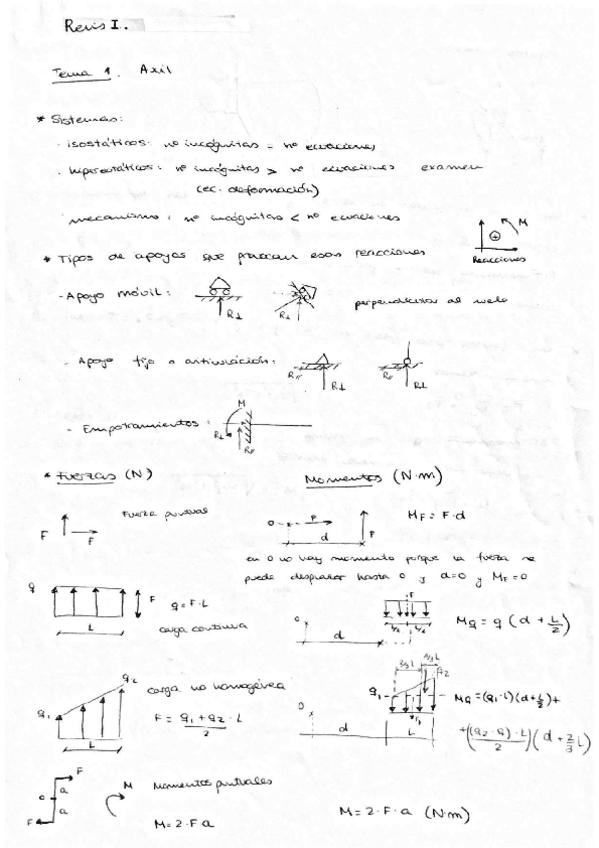 Resis I.
Tema 1. Axil
* Sistemas:
- isostáticos: nº incógnitas = nº ecuaciones
- hiperestáticos: nº incógnitas > nº ecuaciones examen
(ec. deformación)
mecanismo: nº incógnitas < nº ecuaciones
M
+
Reacciones
* Tipos de apoyos que provocan esas reacciones
- Apoyo móvil:
R⊥
R⊥
perpendicular al suelo
- Apoyo fijo o articulación:
R//
R⊥
R//
R⊥
- Empotramientos:
M
R⊥
R//
* Fuerzas (N)
Momentos (N·m)
F
F
Fuerza puntual
0
F
d
F
M_F = F·d
en 0 no hay momento porque la fuerza se
puede desplazar hasta 0 y d=0 y M_F = 0
q
F
L
q = F·L
carga continua
0
d
F
L/2
L/2
Mq = q (d + L/2)
q1
q2
L
carga no homogénea
F = q1 + q2 / 2 · L
0
d
L
q1
q2
2/3 L
1/3 L
Mq = (q1·L)(d + L/2) +
+ ((q2 - q1)·L / 2)(d + 2/3 L)
F
a
o
a
F
M
Momentos puntuales
M = 2·F a
M = 2·F·a (N·m)